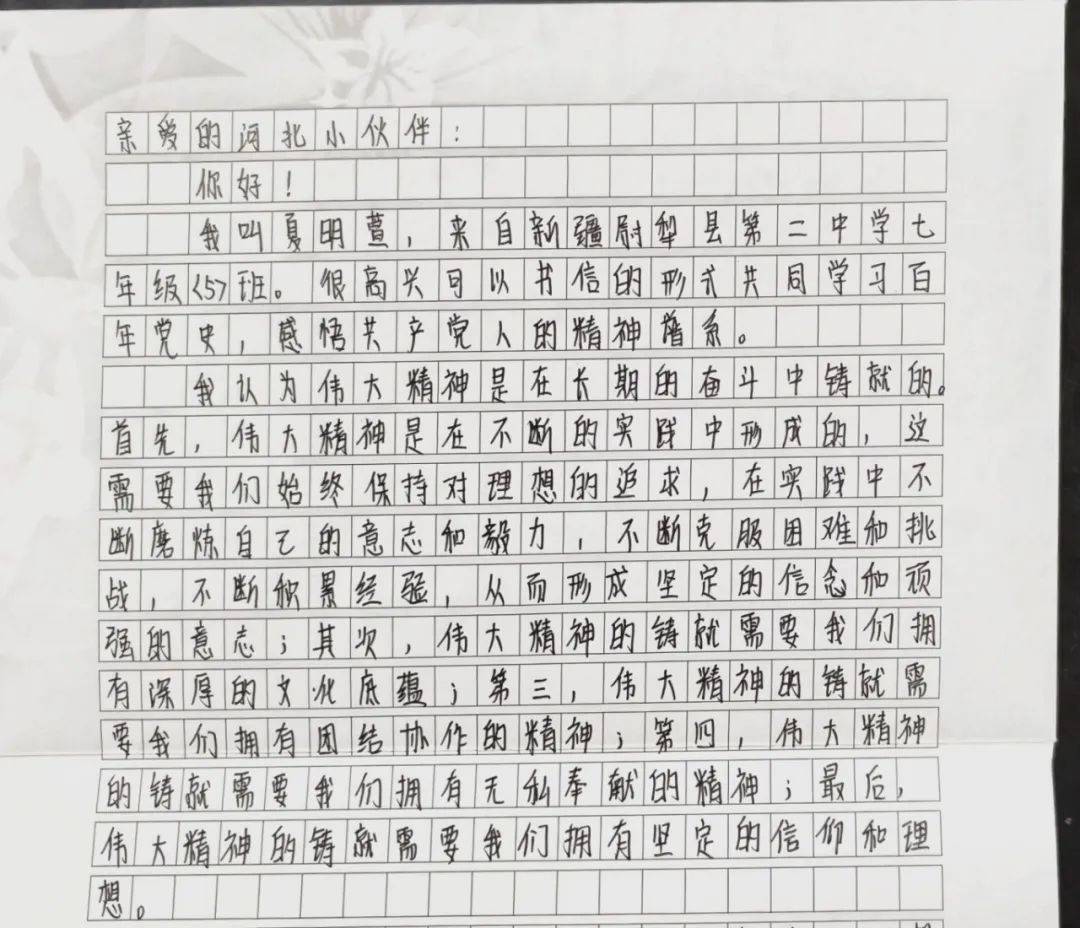 亲爱的河北小伙伴：
你好！
我叫夏明萱，来自新疆尉犁县第二中学七
年级<5>班。很高兴可以书信的形式共同学习百
年党史，感悟共产党人的精神谱系。
我认为伟大精神是在长期的奋斗中铸就的。
首先，伟大精神是在不断的实践中形成的，这
需要我们始终保持对理想的追求，在实践中不
断磨炼自己的意志和毅力，不断克服困难和挑
战，不断积累经验，从而形成坚定的信念和顽
强的意志；其次，伟大精神的铸就需要我们拥
有深厚的文化底蕴；第三，伟大精神的铸就需
要我们拥有团结协作的精神；第四，伟大精神
的铸就需要我们拥有无私奉献的精神；最后，
伟大精神的铸就需要我们拥有坚定的信仰和理
想。